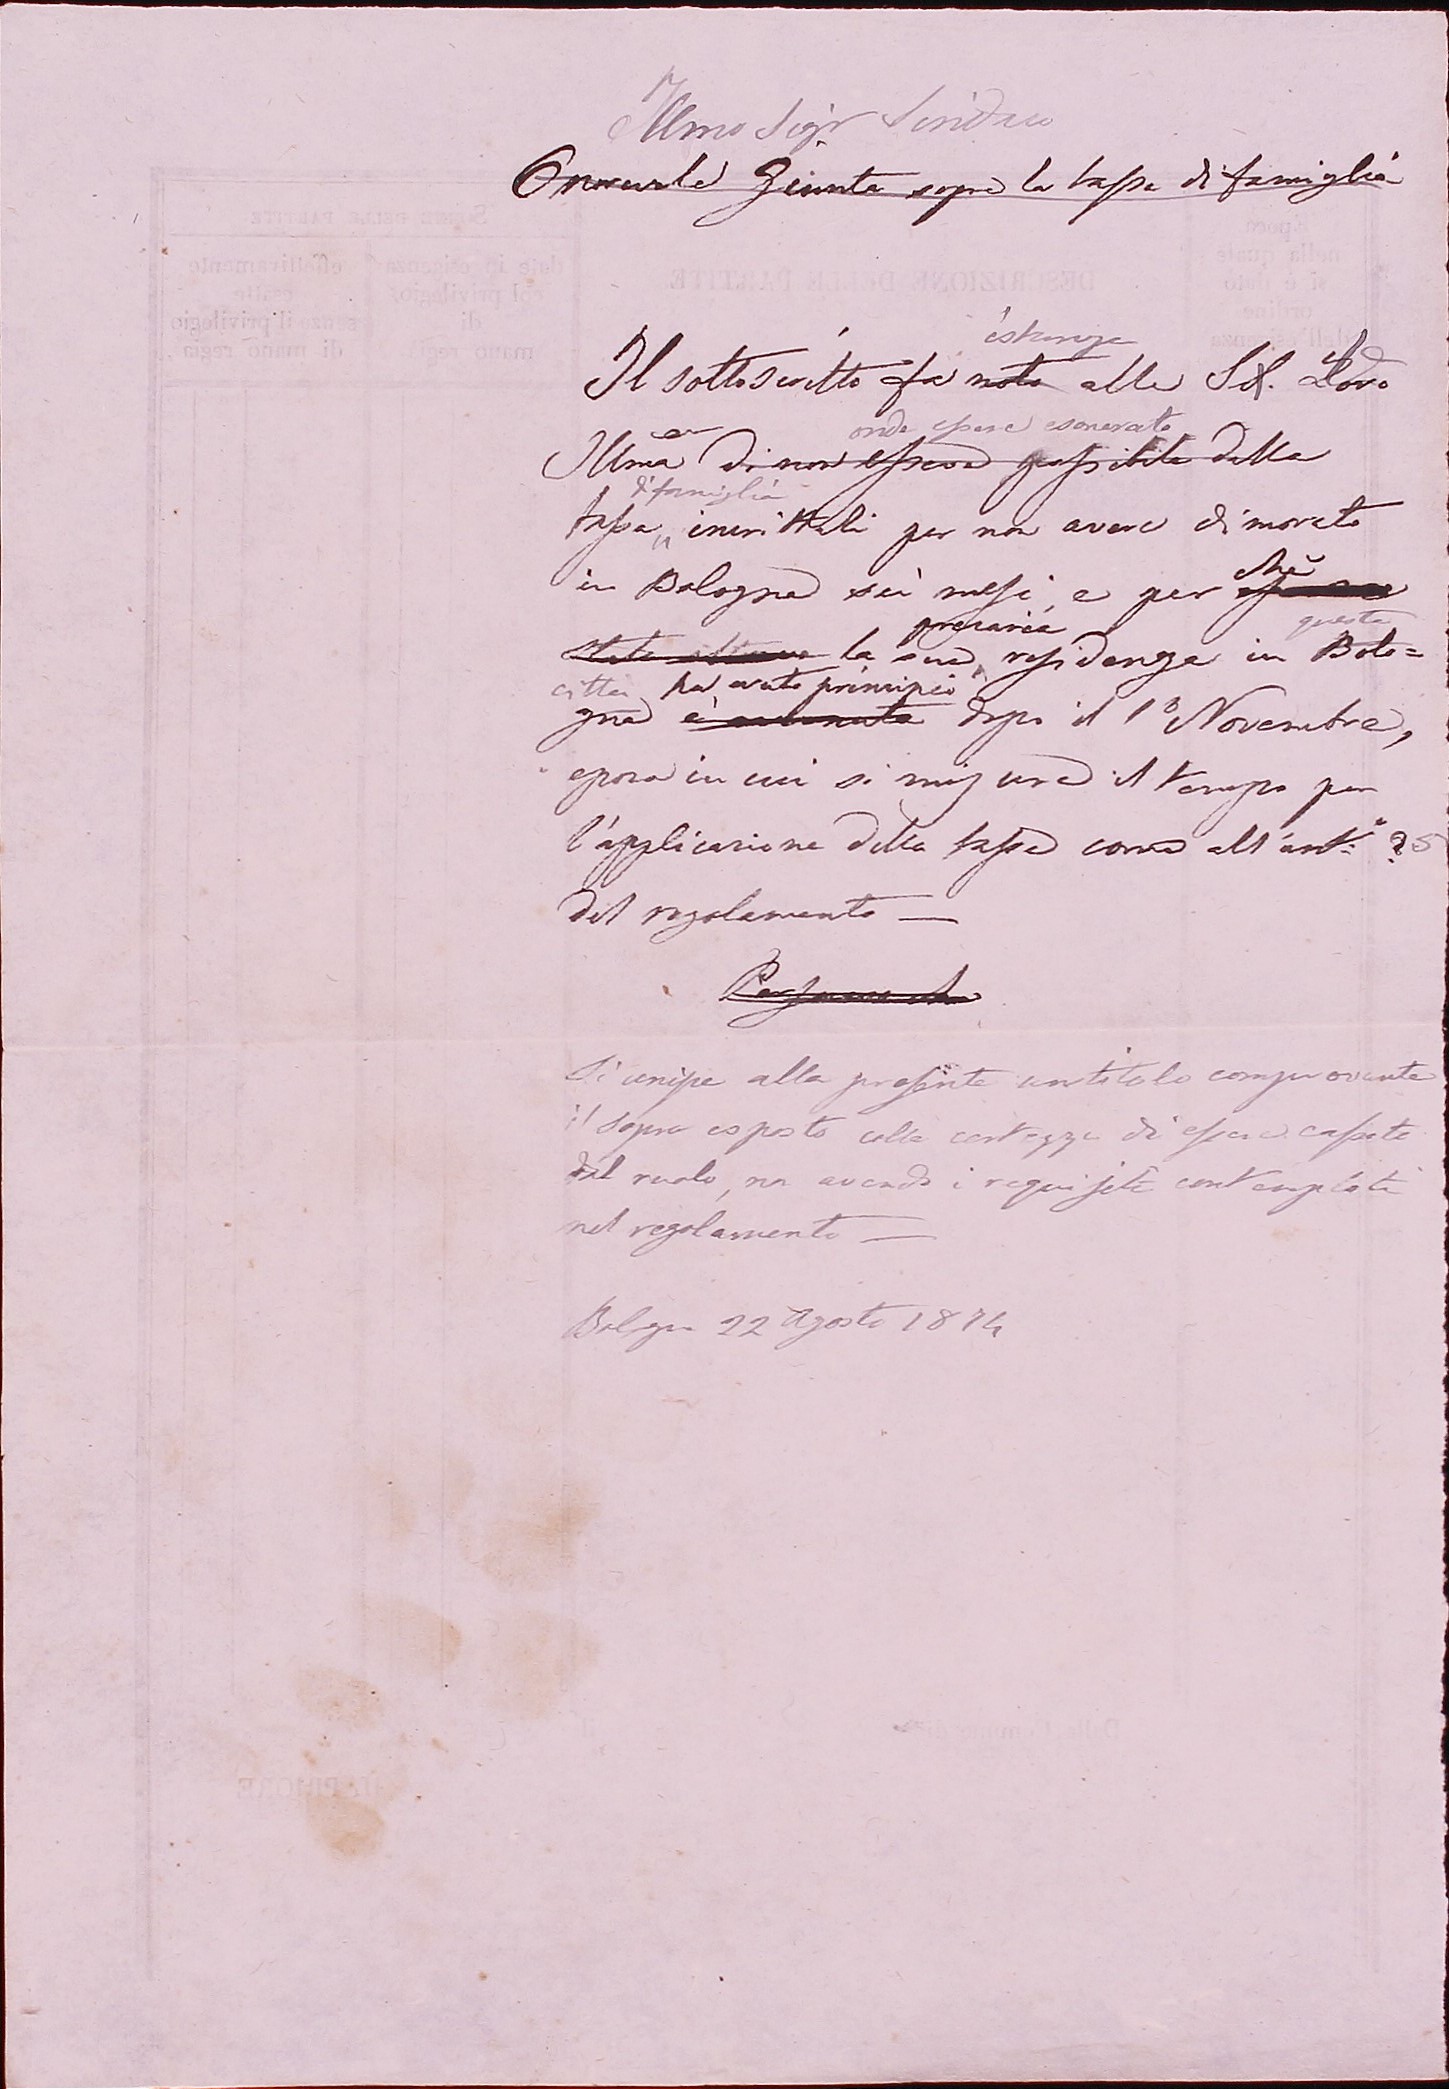 Illmo Sigr Sindaco
Onorevole Giunta sopra la tassa di famiglia
istanza
Il sottoscritto fa noto alla S.V. Loro
onde essere esonerato
Illma di non essere passibile della
di famiglia
tassa inerittali per non avere dimorato
in Bologna sei mesi, e per che
precaria questa
stato la sua residenza in Bolo=
città ha avuto principio
gna è dopo il 1º Novembre,
epoca in cui si misura il tempo per
l'applicazione della tassa come all'art.º 25
del regolamento —
Si unisce alla presente un titolo comprovante
il sopra esposto colla certezza di essere cassato
dal ruolo, non avendo i requisiti contemplati
nel regolamento —
Bologna 22 Agosto 1874
SERIE DELLE PARTITE
date in esigenza
col privilegio
di
mano regia
effettivamente
esatte
senza il privilegio
di mano regia
DESCRIZIONE DELLE PARTITE
Epoca
nella quale
si è dato
ordine
dell'esigenza
Dalla Comune di
il
IL PRIORE